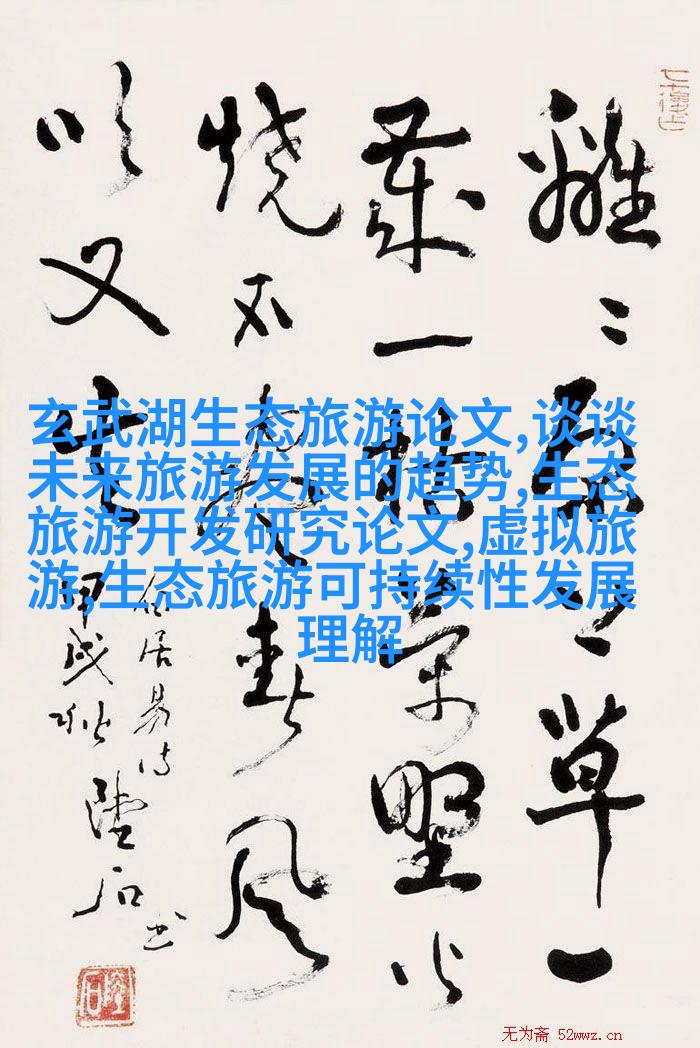 離〻原上草一
歲一枯荣野火
烧不尽春风
吹又生
白居易诗
甲戌秋 石书
玄武湖生态旅游论文,谈谈
未来旅游发展的趋势,生态
旅游开发研究论文,虚拟旅
游,生态旅游可持续性发展
理解
无为斋 52wwz.cn